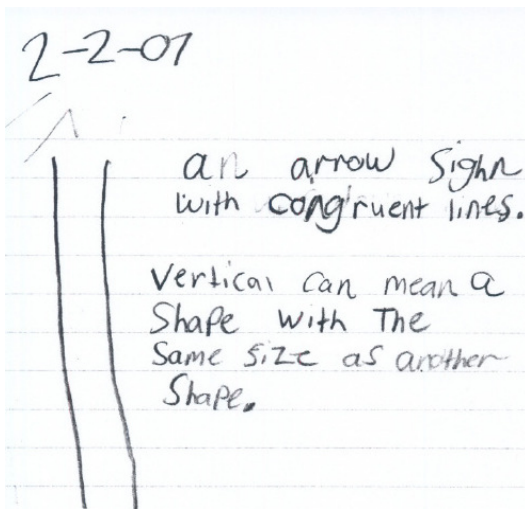 2-2-07
an arrow sighn
with congruent lines.
Vertical can mean a
Shape with The
Same size as another
Shape.